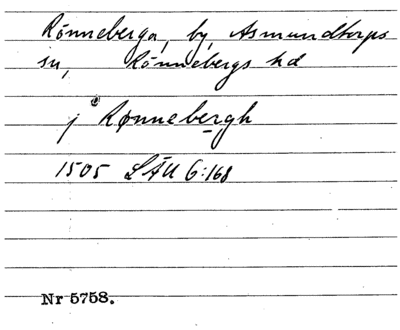 Rönneberga, by, Asmundtorps
sn, Rönnebergs hd
j Rønnebergh
1505 LÄU 6:168
Nr 5758.